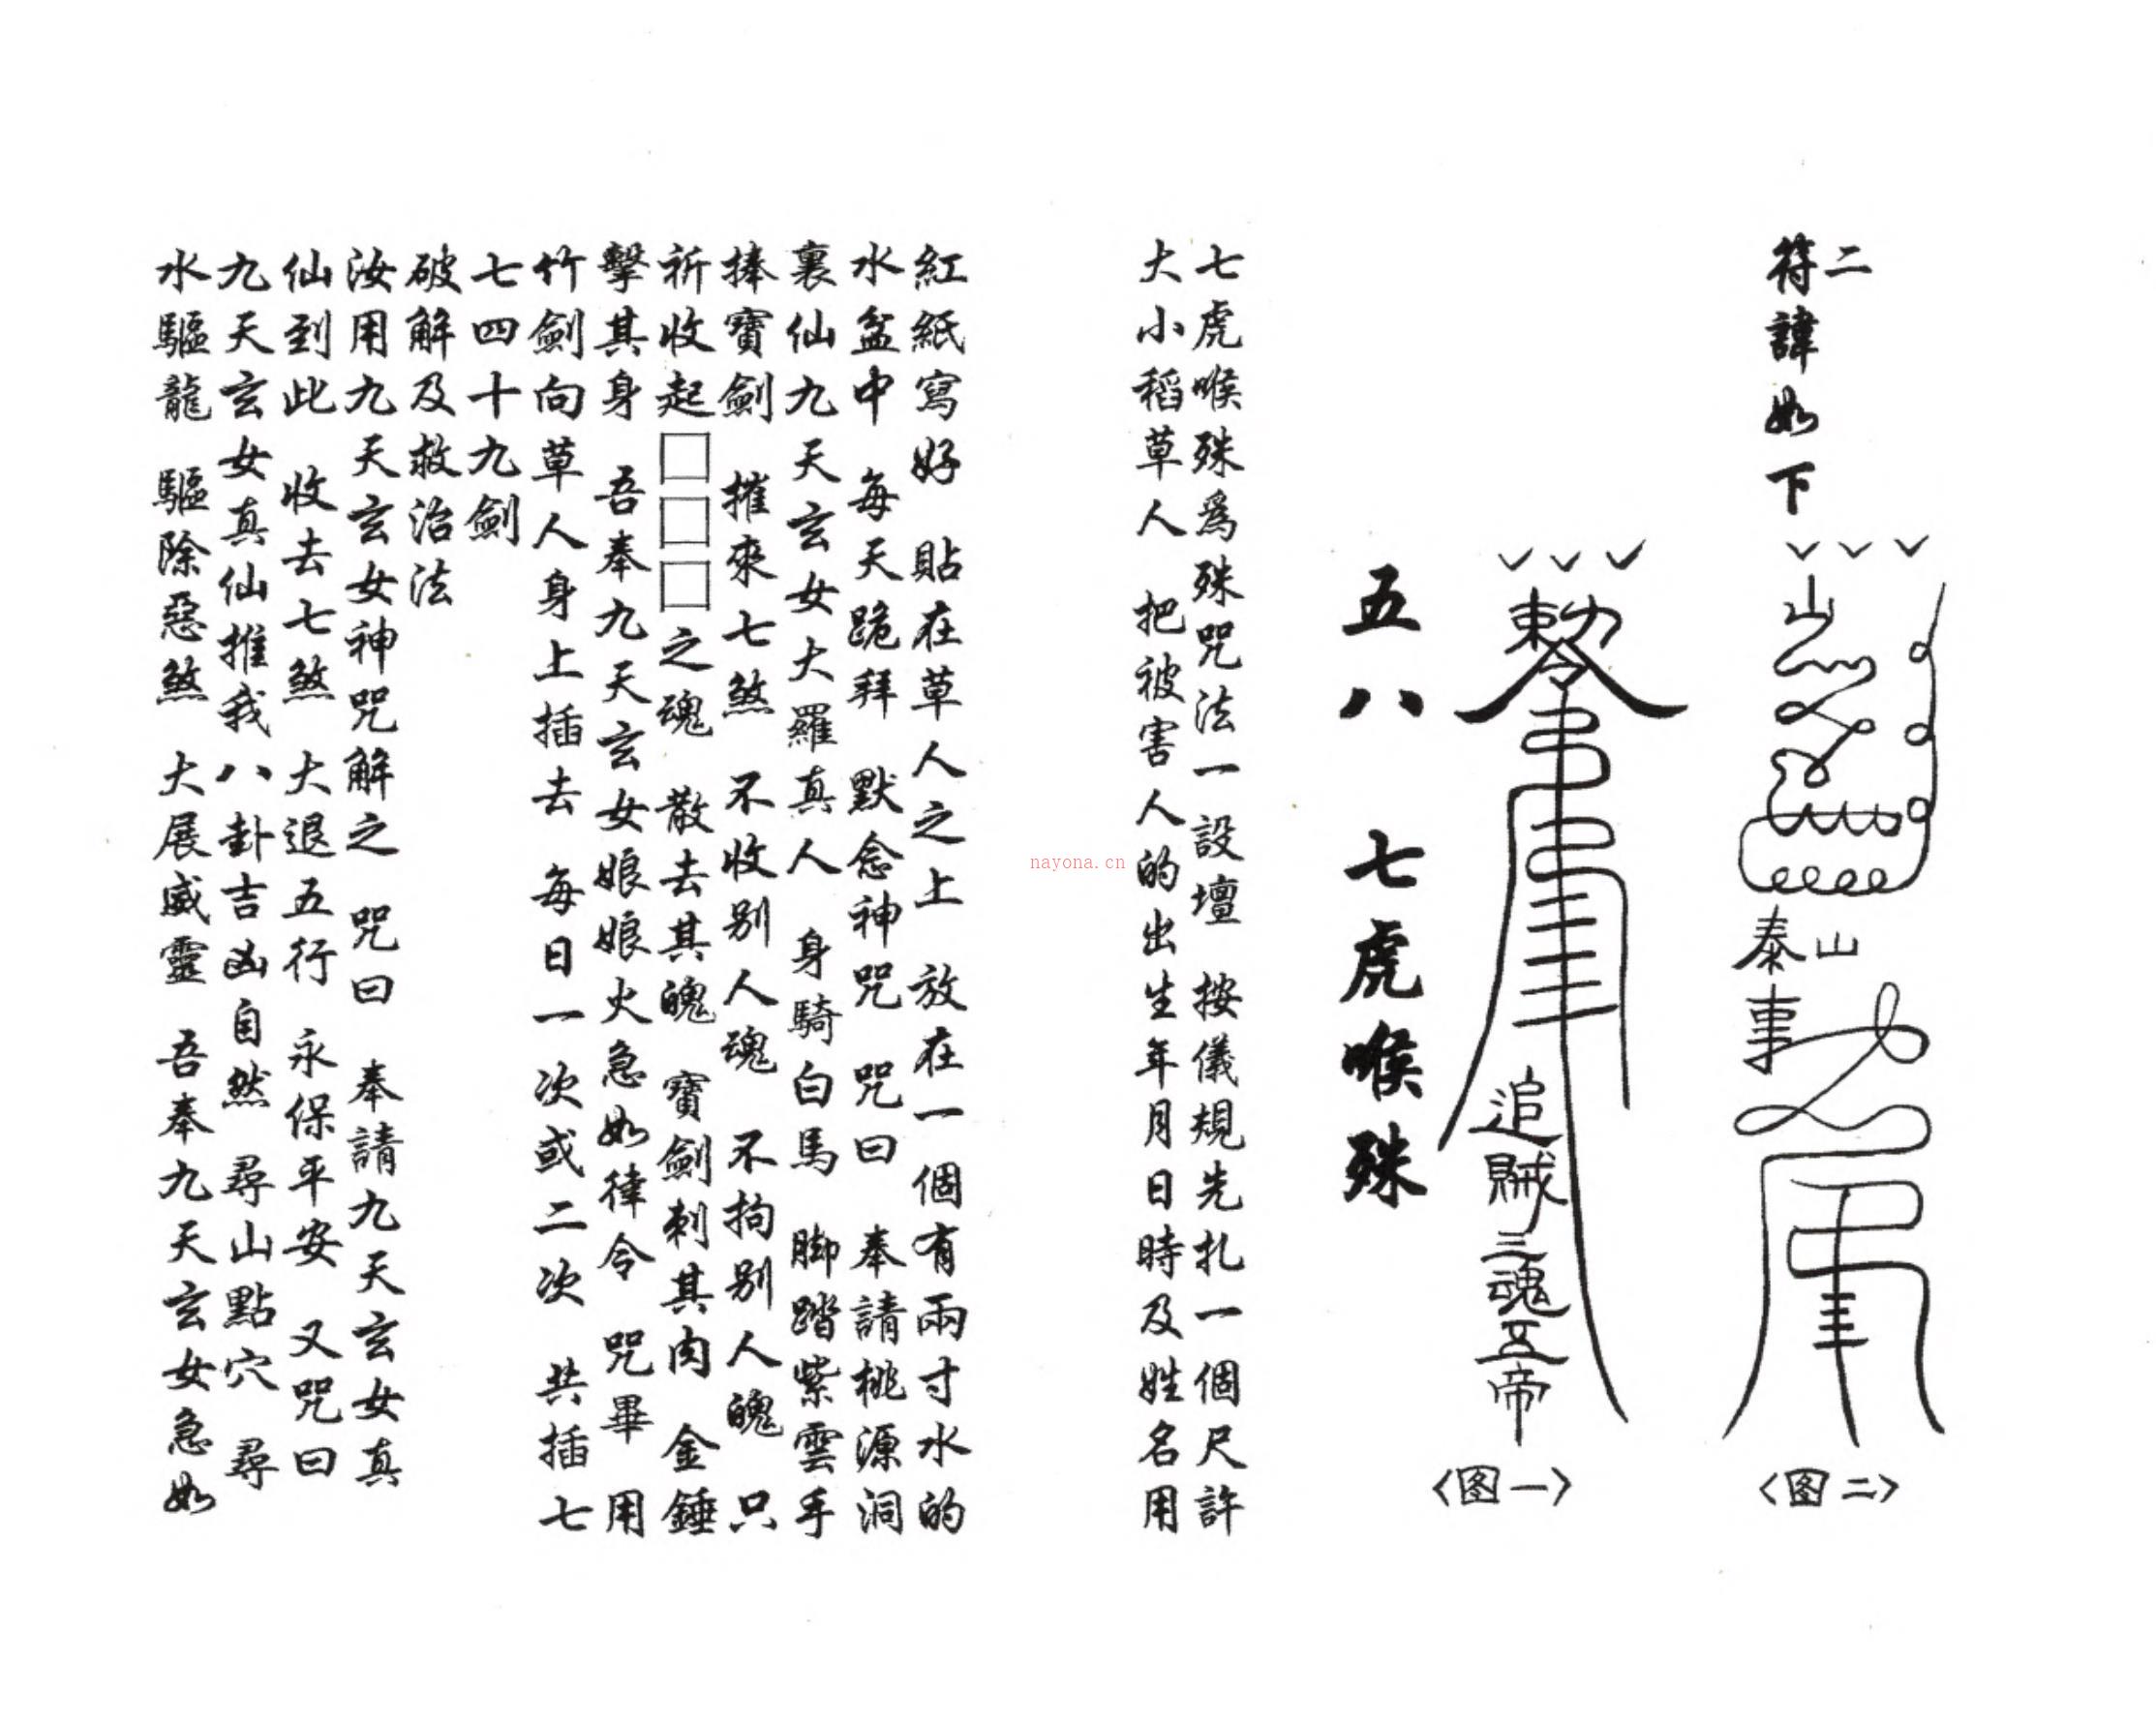 二
符諱如下
山
泰山
事
〈图二〉
敕令
追賊三魂五帝
〈图一〉
五八 七虎喉殊
七虎喉殊爲殊咒法一設壇 按儀規先扎一個尺許
大小稻草人 把被害人的出生年月日時及姓名用
紅紙寫好 貼在草人之上 放在一個有兩寸水的
水盆中 每天跪拜 默念神咒 咒曰 奉請桃源洞
裏仙九天玄女大羅真人 身騎白馬 脚踏紫雲手
捧寶劍 摧來七煞 不收别人魂 不拘别人魄 只
祈收起□□□之魂 散去其魄 寶劍刺其肉 金錘
擊其身 吾奉九天玄女娘娘火急如律令 咒畢 用
竹劍向草人身上插去 每日一次或二次 共插七
七四十九劍
破解及救治法
汝用九天玄女神咒解之 咒曰 奉請九天玄女真
仙到此 收去七煞 大退五行 永保平安 又咒曰
九天玄女真仙推我八卦吉凶自然 尋山點穴 尋
水驅龍 驅除惡煞 大展威靈 吾奉九天玄女急如
nayona.cn